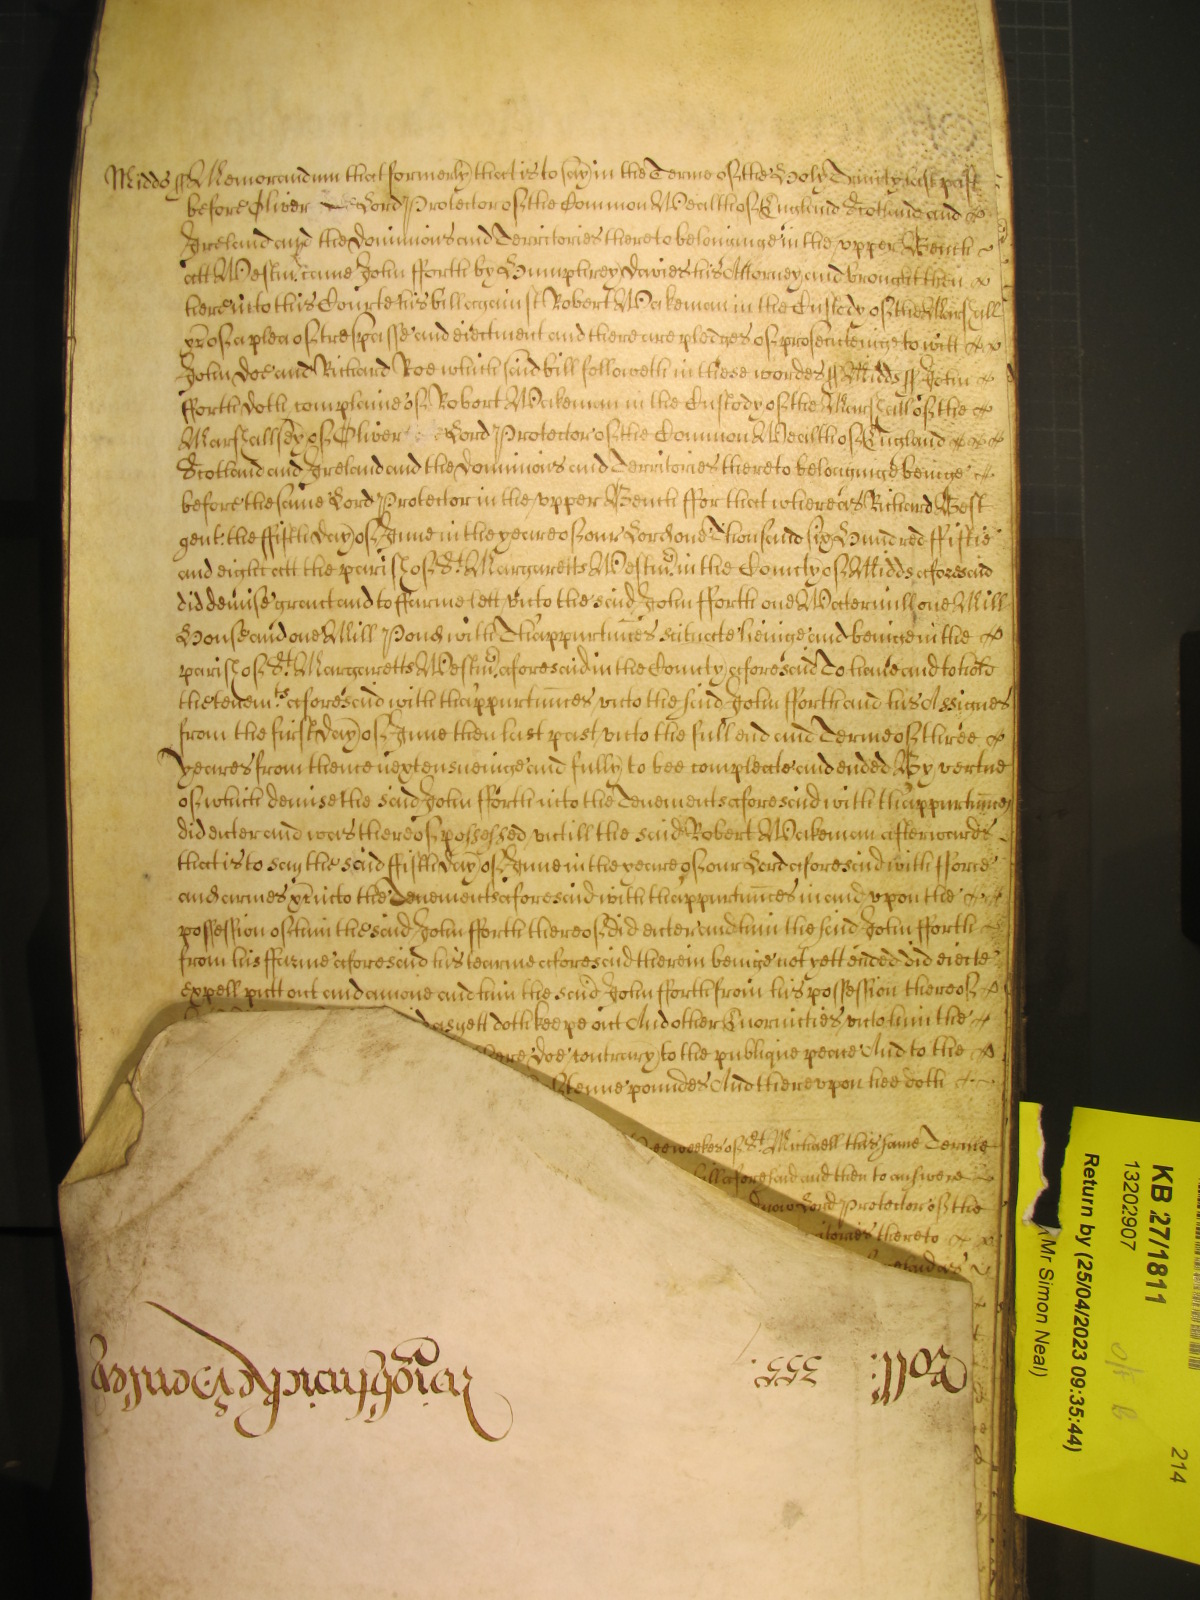 Midds ss Memorandum that formerly that is to say in the Terme of the Holy Trinity last past
before Oliver Lord Protector of the Common Wealth of England Scotland and
Ireland and the Dominions and Territories thereto belonginge in the vpper Bench
att Westm̃ came John fforth by Humphrey Davies his Attorney and brought then
here into this Courte his bill against Robert Wakeman in the Custody of the Marshall
&c of a plea of trespasse and eiectment and there are pledges of prosecutinge to witt
John Doe and Richard Roe which said bill followeth in these wordes ss Midds ss John
fforth doth complaine of Robert Wakeman in the Custody of the Marshall of the
Marshallsey of Oliver Lord Protector of the Common Wealth of England
Scotland and Ireland and the Dominions and Territories thereto belonginge beinge
before the same Lord Protector in the vpper Bench ffor that whereas Richard Best
gent. the ffifth day of June in the yeare of our Lord one Thousand six Hundred ffiftie
and eight att the parish of St. Margaretts Westm̃ in the County of Midds aforesaid
did demise grant and to ffarme lett vnto the said John fforth one Watermill one Mill
House and one Mill Pond with Th'appurtñces scituate lieinge and beinge in the
parish of St. Margaretts Westm̃ aforesaid in the County aforesaid To haue and to hold
the tenemts. aforesaid with th'appurtñces vnto the said John fforth and his Assignes
from the first day of June then last past vnto the full end and Terme of three
yeares from thence next ensueinge and fully to bee compleate and ended By vertue
of which demise the said John fforth into the Tenements aforesaid with th'appurtñces
did enter and was thereof possessed vntill the said Robert Wakeman afterwards
that is to say the said ffifth day of June in the yeare of our Lord aforesaid with fforce
and armes &c into the Tenements aforesaid with th'appurtñces in and vpon the
possession of him the said John fforth thereof did enter and him the said John fforth
from his ffarme aforesaid his tearme aforesaid therein beinge not yett ended did eiecte
expell putt out and amoue and him the said John fforth from his possession thereof
as yett doth keepe out And other Enormities vnto him the
there doe contrary to the publique peace And to the
Tenne poundes And therevpon hee doth
weekes of St. Michaell this same Terme
aforesaid and then to answere
now Lord Protector of the
thereto
Roll: 555:
KB 27/1811
13202907
Return by (25/04/2023 09:35:44)
Mr Simon Neal)
214